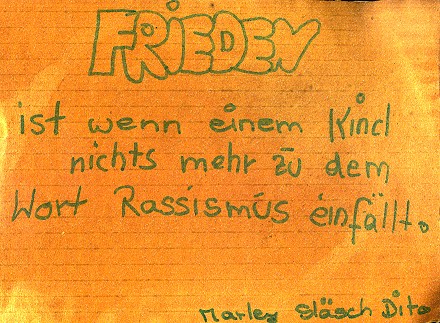 FRIEDEN
ist wenn einem Kind
nichts mehr zu dem
Wort Rassismus einfällt.
Marley Släsch Dito